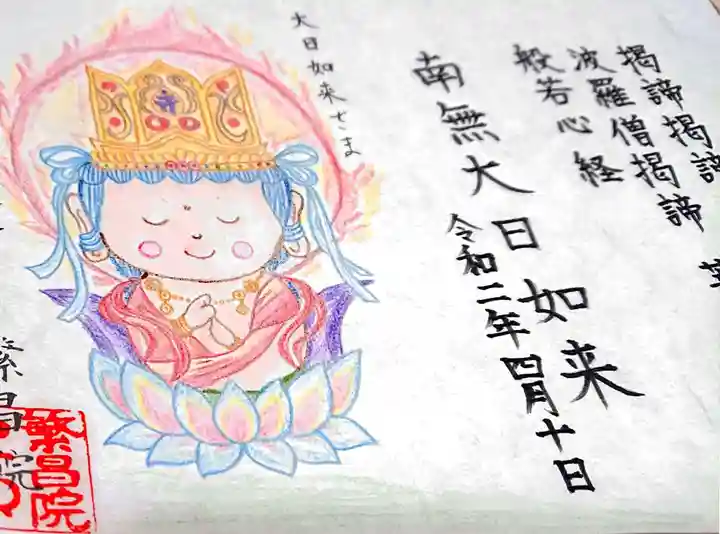 揭諦揭諦
波羅僧揭諦
般若心経
南無大日如来
令和二年四月十日
大日如来さま
繁昌院
繁昌院